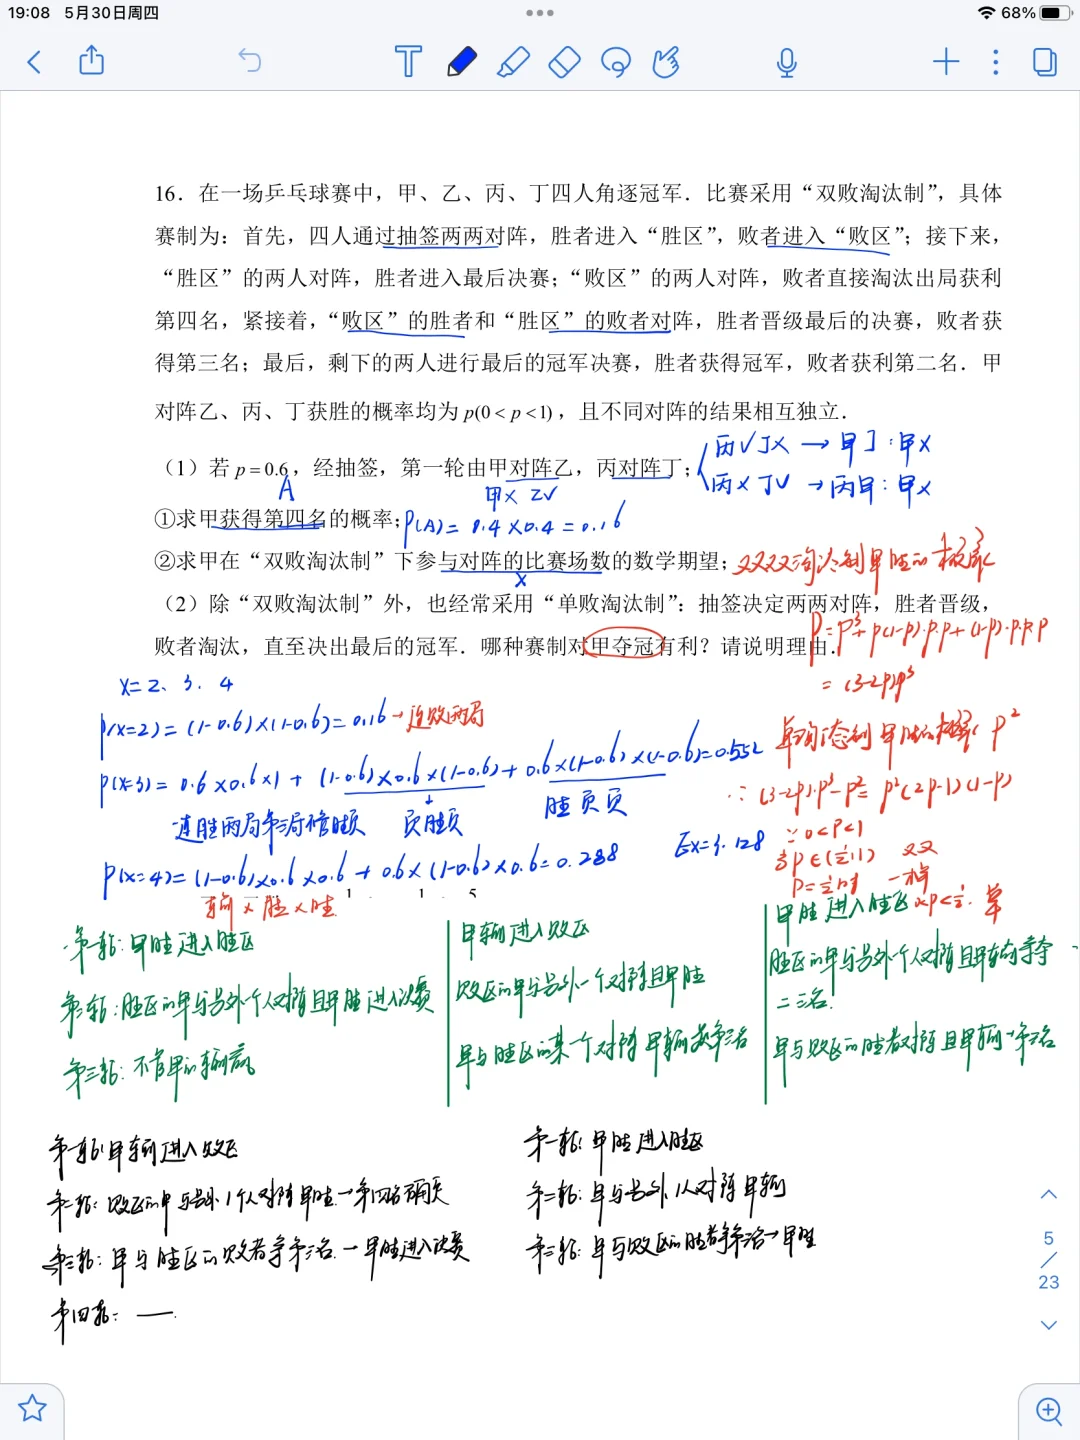 19:08 5月30日周四
68%
16．在一场乒乓球赛中，甲、乙、丙、丁四人角逐冠军．比赛采用“双败淘汰制”，具体
赛制为：首先，四人通过抽签两两对阵，胜者进入“胜区”，败者进入“败区”；接下来，
“胜区”的两人对阵，胜者进入最后决赛；“败区”的两人对阵，败者直接淘汰出局获利
第四名，紧接着，“败区”的胜者和“胜区”的败者对阵，胜者晋级最后的决赛，败者获
得第三名；最后，剩下的两人进行最后的冠军决赛，胜者获得冠军，败者获利第二名．甲
对阵乙、丙、丁获胜的概率均为 p(0 < p < 1)，且不同对阵的结果相互独立．
丙√丁× → 甲丁：甲×
（1）若 p = 0.6，经抽签，第一轮由甲对阵乙，丙对阵丁；
丙×丁√ → 丙甲：甲×
A
甲× 乙√
①求甲获得第四名的概率；
P(A) = 0.4×0.4 = 0.16
②求甲在“双败淘汰制”下参与对阵的比赛场数的数学期望；
X
双败淘汰制甲胜的概率
（2）除“双败淘汰制”外，也经常采用“单败淘汰制”：抽签决定两两对阵，胜者晋级，
败者淘汰，直至决出最后的冠军．哪种赛制对甲夺冠有利？请说明理由．
P = p³ + p(1-p)·p·p + (1-p)·p·p·p
= (3-2p)p³
X = 2、3．4
P(X=2) = (1-0.6)×(1-0.6) = 0.16 → 连败两局
甲胜的概率 p²
P(X=3) = 0.6×0.6×1 + (1-0.6)×0.6×(1-0.6) + 0.6×(1-0.6)×(1-0.6) = 0.552
∵ (3-2p)·p³ - p² = p²(2p-1)(1-p)
连胜两局第三局
负胜负
胜负负
∵ 0<p<1
EX = 3.128
P(X=4) = (1-0.6)×0.6×0.6 + 0.6×(1-0.6)×0.6 = 0.288
p∈(½,1) 双
p=½时 一样
0<p<½. 单
输×胜×胜
第一轮：甲胜进入胜区
第二轮：胜区的甲与另外一个人对阵且甲胜进入决赛
第三轮：不管甲的输赢
甲输进入败区
败区的甲与另外一个对阵且甲胜
甲与胜区的某一个对阵甲输获第三名
甲胜进入胜区
胜区的甲与另外一个人对阵且甲输争夺
二三名.
甲与败区的胜者对阵且甲输→第三名
第一轮：甲输进入败区
第二轮：败区的甲与另外1个人对阵甲胜→第四名确定
第三轮：甲与胜区的败者争第三名 → 甲胜进入决赛
第四轮：—
第一轮：甲胜进入胜区
第二轮：甲与另外1人对阵甲输
第三轮：甲与败区的胜者争第三名→甲胜
5
23